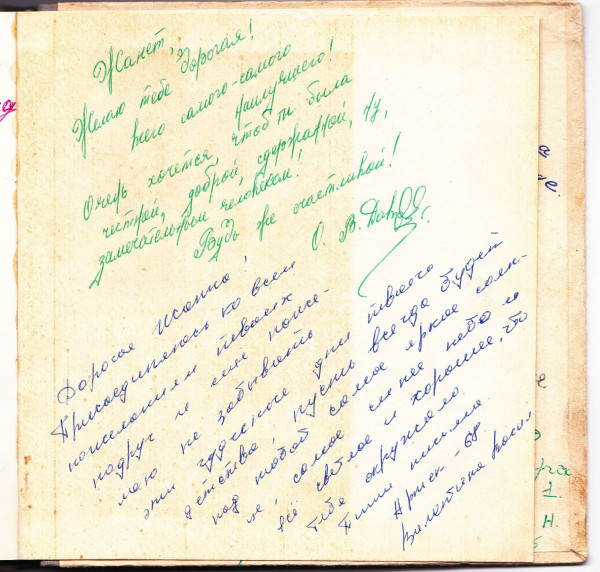 Жанет, дорогая!
Желаю тебе
всего самого-самого
наилучшего!
Очень хочется, чтоб ты была
чистой, доброй, сдержанной, ну,
замечательным человеком!
Будь же счастливой!
О. В.
Дорогая Жанна!
Присоединяюсь ко всем
пожеланиям твоих
подруг и ещё поже-
лаю не забывать
эти чудесные дни твоего
детства, пусть всегда будет
над тобой самое яркое солн-
це, самое синее небо и
всё светлое и хорошее, что
тебя окружало.
Пиши письма.
Артек - 68
Валентина